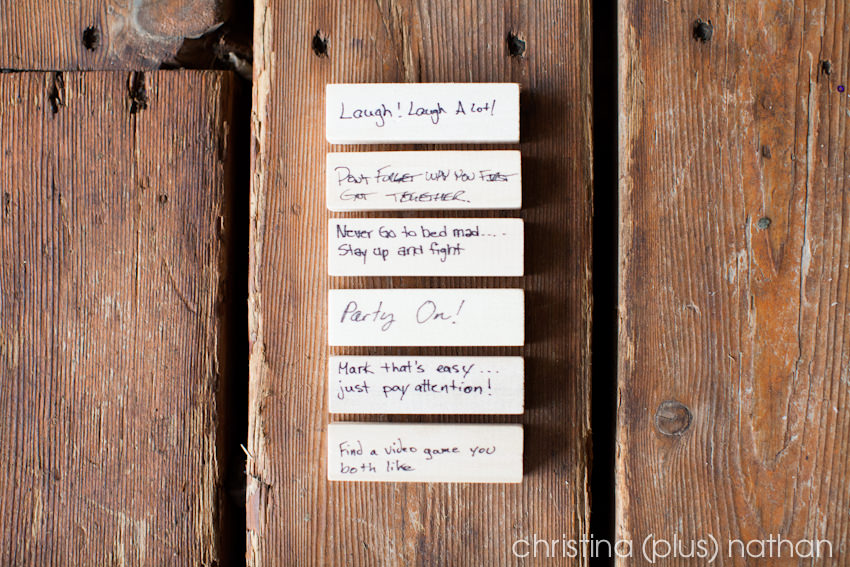 Laugh! Laugh A lot!
DON'T FORGET WHY YOU FIRST
GOT TOGETHER.
Never Go to bed mad....
Stay up and fight
Party On!
Mark that's easy...
just pay attention!
Find a video game you
both like
christina (plus) nathan